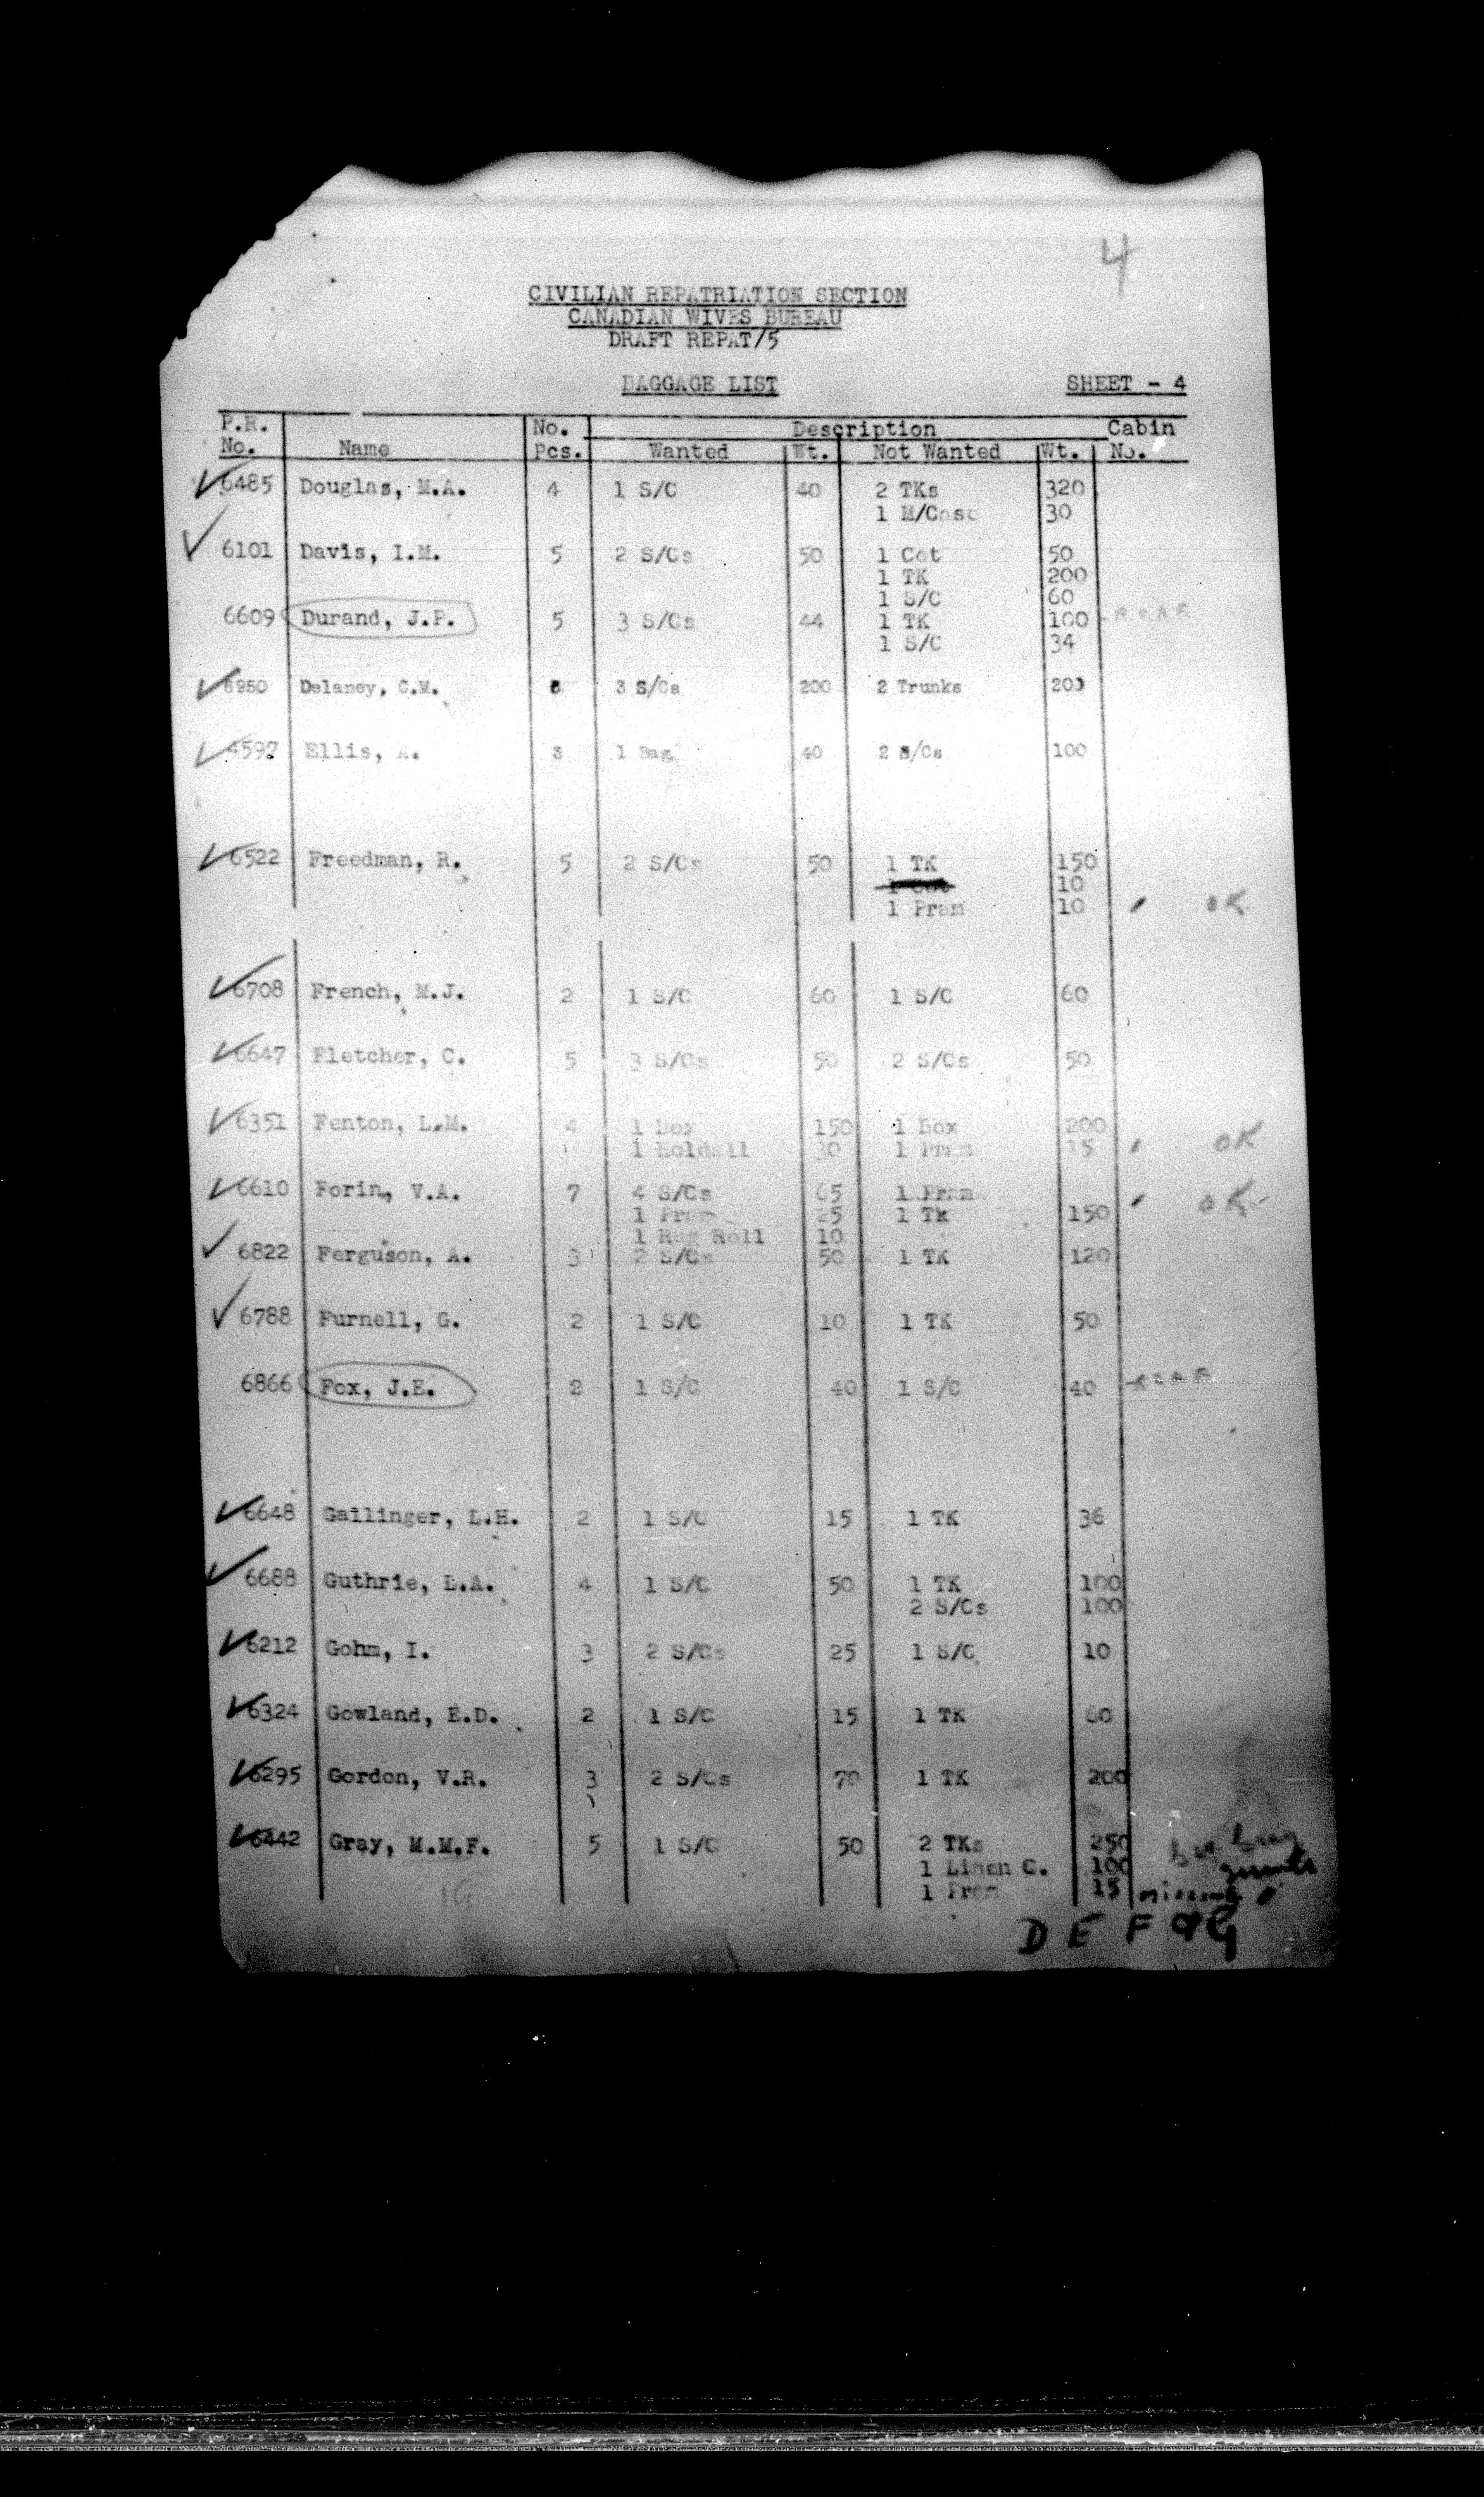 4
CIVILIAN REPATRIATION SECTION
CANADIAN WIVES BUREAU
DRAFT REPAT/5
BAGGAGE LIST SHEET - 4
P.R. No. Description Cabin
No. Name Pcs. Wanted Wt. Not Wanted Wt. No.
6485 Douglas, M.A. 4 1 S/C 40 2 TKs 320
1 M/Case 30
6101 Davis, I.M. 5 2 S/Cs 50 1 Cot 50
1 TK 200
1 S/C 60
6609 Durand, J.P. 5 3 S/Cs 44 1 TK 100
1 S/C 34
6950 Delaney, C.M. 3 S/Cs 200 2 Trunks 200
4597 Ellis, A. 3 1 Bag 40 2 S/Cs 100
6522 Freedman, R. 5 2 S/Cs 50 1 TK 150
10
1 Pram 10 OK
6708 French, M.J. 2 1 S/C 60 1 S/C 60
6647 Fletcher, C. 5 3 S/Cs 50 2 S/Cs 50
6351 Fenton, L.M. 4 1 Box 150 1 Box 200
1 Holdall 30 1 Pram 15 OK
6610 Forin, V.A. 7 4 S/Cs 65 1 Pram
1 Pram 25 1 TK 150 OK
1 Rug Roll 10
6822 Ferguson, A. 3 2 S/Cs 50 1 TK 120
6788 Furnell, G. 2 1 S/C 10 1 TK 50
6866 Fox, J.E. 2 1 S/C 40 1 S/C 40
6648 Gallinger, L.H. 2 1 S/C 15 1 TK 36
6688 Guthrie, L.A. 4 1 S/C 50 1 TK 100
2 S/Cs 100
6212 Gohm, I. 3 2 S/Cs 25 1 S/C 10
6324 Gowland, E.D. 2 1 S/C 15 1 TK 60
6295 Gordon, V.R. 3 2 S/Cs 70 1 TK 200
6442 Gray, M.M.F. 5 1 S/C 50 2 TKs 250
1 Linen C. 100
1 Pram 15 missing
D E F G